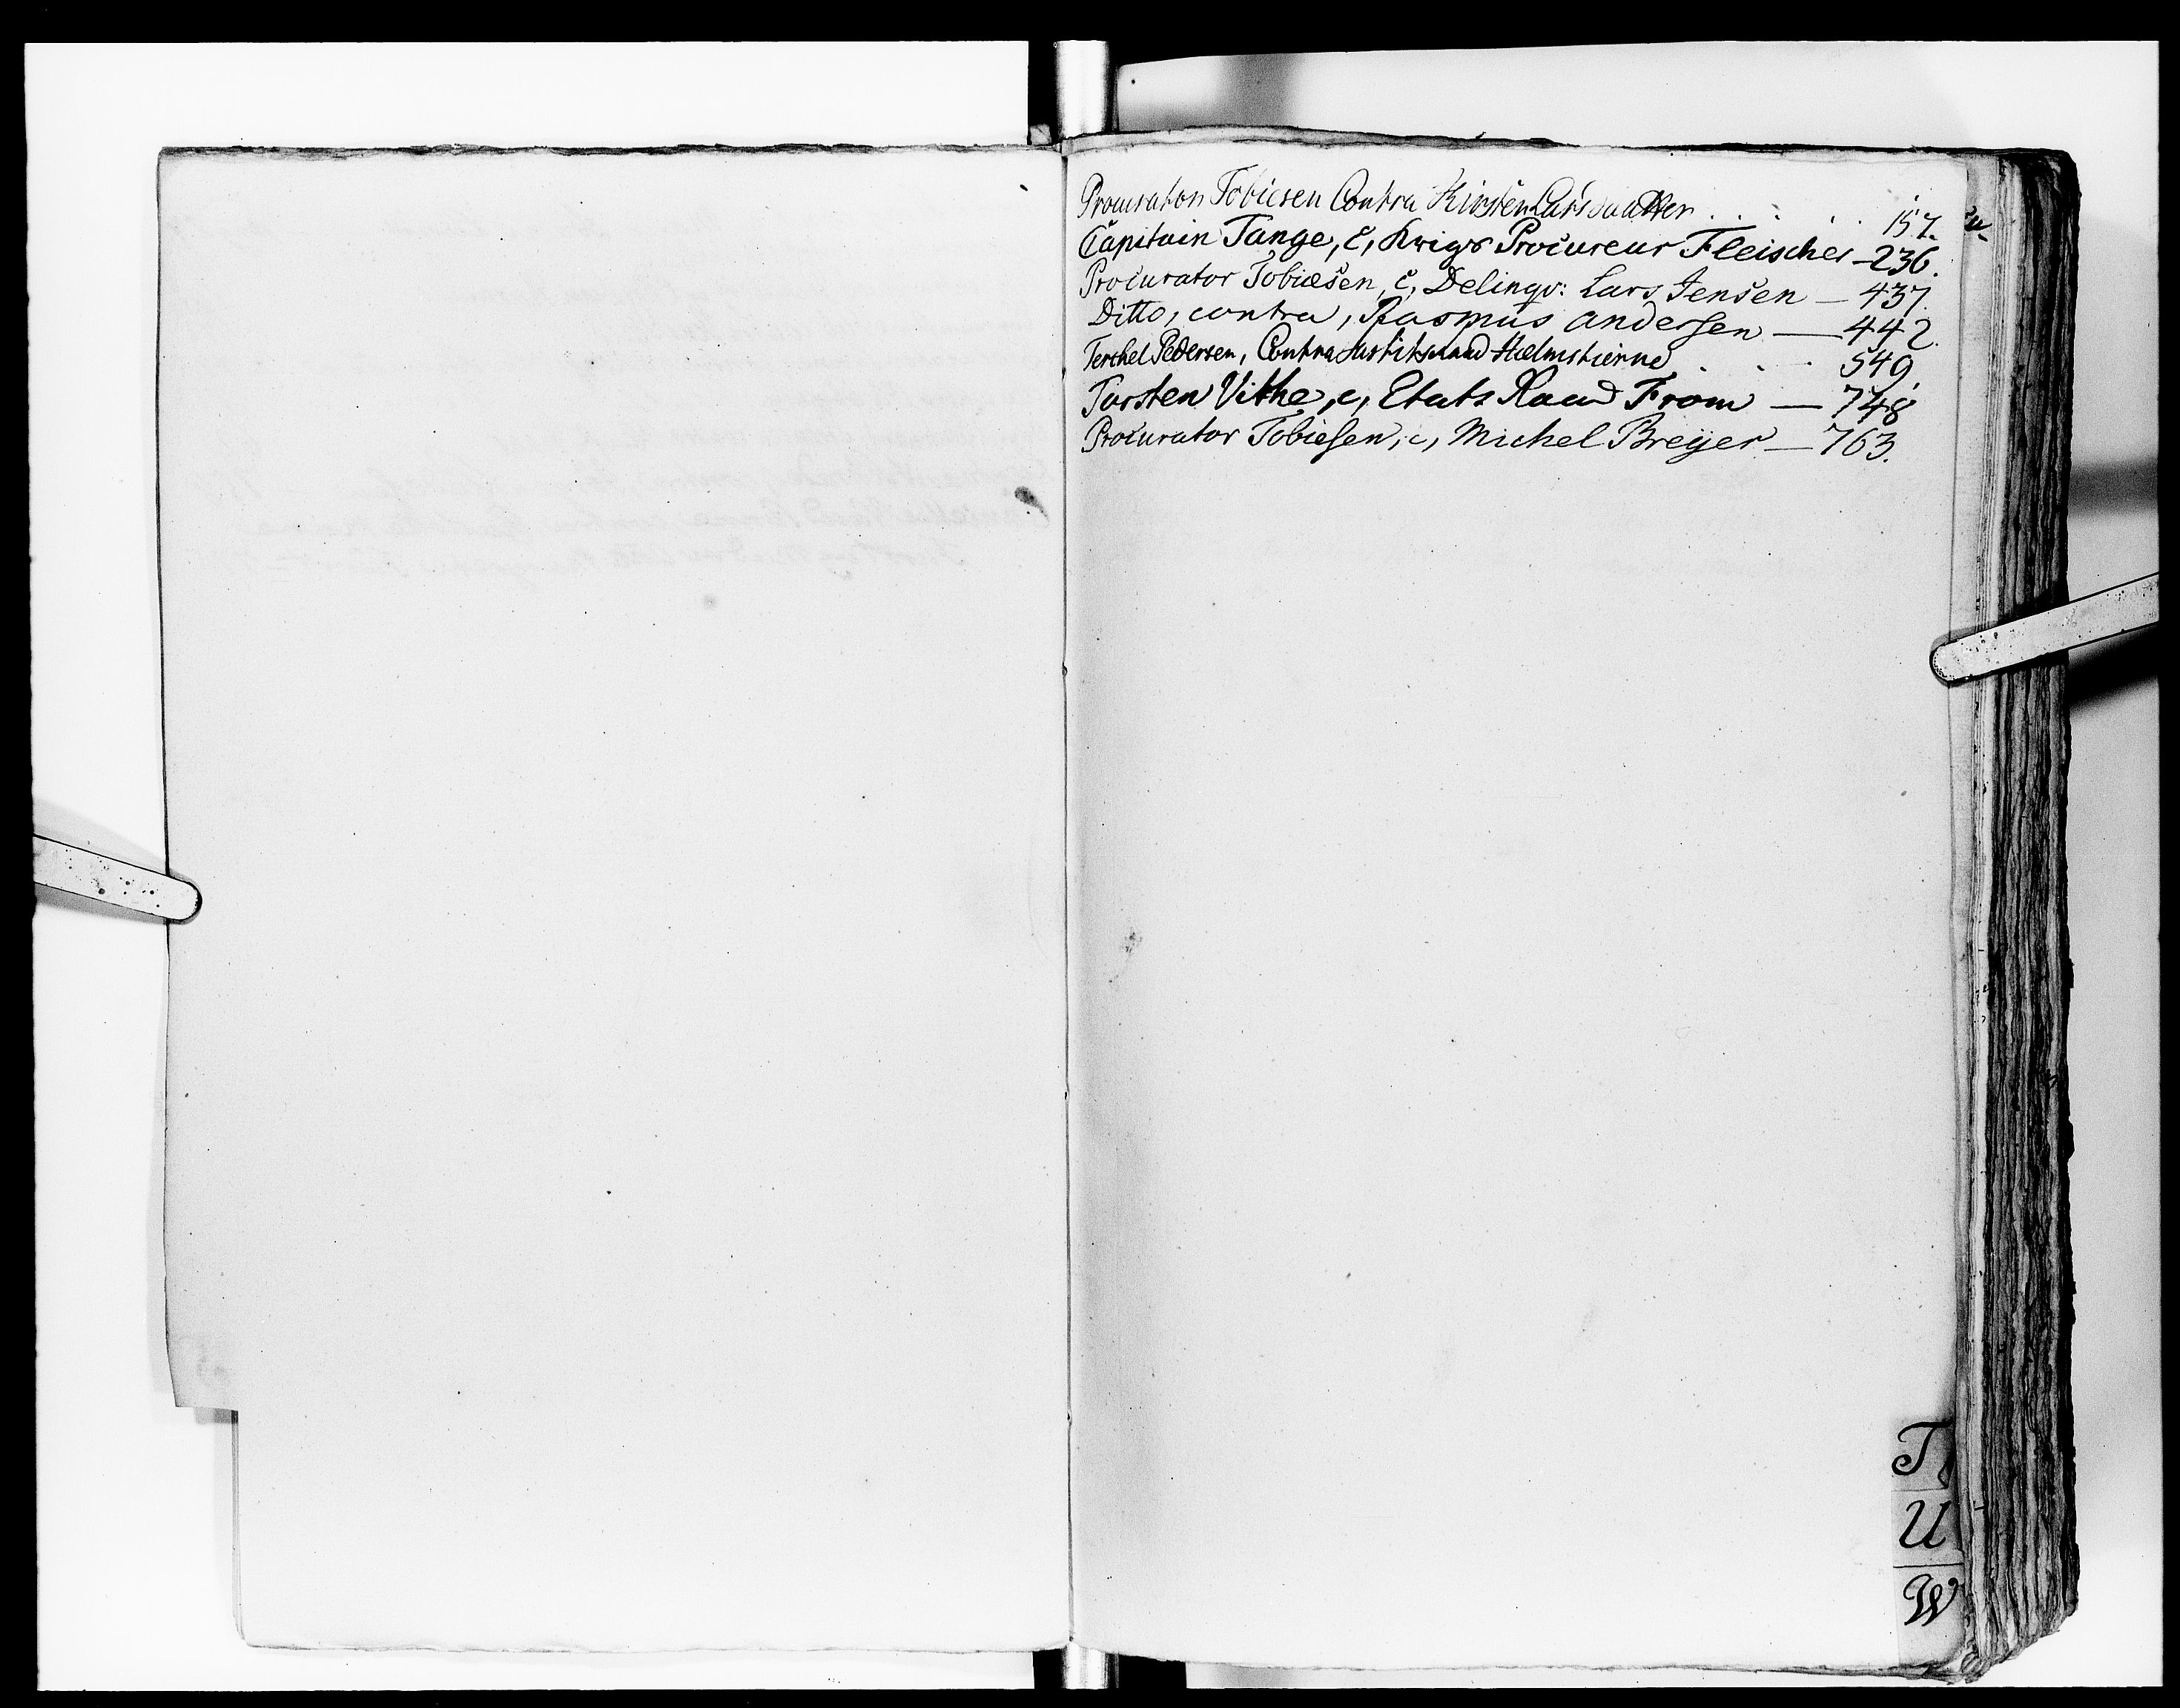 Procurator Tobiesen Contra Kirsten Larsdatter . . . . . 157.
Capitain Tange, c, Krigs Procureur Fleischer - 236.
Procurator Tobiesen, c, Delinqv: Lars Jensen — 437.
Ditto, contra, Rasmus Andersen — 442.
Terchel Pedersen, Contra Justitsraad Hielmstierne . . . 549.
Torsten Vithe, c, Etats Raad From — 748.
Procurator Tobiesen, c, Michel Breyer — 763.
T
U
W